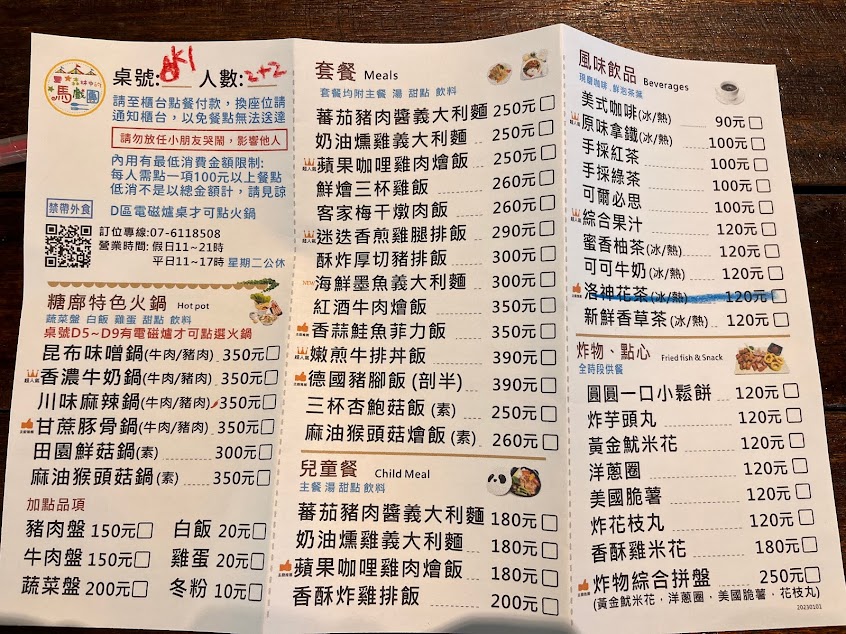 星森林中的
馬戲團
桌號: AK1 人數: 2+2
請至櫃台點餐付款，換座位請
通知櫃台，以免餐點無法送達
請勿放任小朋友哭鬧，影響他人
內用有最低消費金額限制:
每人需點一項100元以上餐點
低消不是以總金額計，請見諒
禁帶外食 D區電磁爐桌才可點火鍋
訂位專線:07-6118508
營業時間: 假日11~21時
平日11~17時 星期二公休
糖廍特色火鍋 Hot pot
蔬菜盤 白飯 雞蛋 甜點 飲料
桌號D5~D9有電磁爐才可點選火鍋
昆布味噌鍋(牛肉/豬肉) 350元
超人氣 香濃牛奶鍋(牛肉/豬肉) 350元
川味麻辣鍋(牛肉/豬肉) 350元
主廚推薦 甘蔗豚骨鍋(牛肉/豬肉) 350元
田園鮮菇鍋(素) 300元
麻油猴頭菇鍋(素) 350元
加點品項
豬肉盤 150元 白飯 20元
牛肉盤 150元 雞蛋 20元
蔬菜盤 200元 冬粉 10元
套餐 Meals
套餐均附主餐 湯 甜點 飲料
蕃茄豬肉醬義大利麵 250元
奶油燻雞義大利麵 250元
超人氣 蘋果咖哩雞肉燴飯 250元
鮮燴三杯雞飯 260元
客家梅干燉肉飯 260元
超人氣 迷迭香煎雞腿排飯 290元
酥炸厚切豬排飯 300元
NEW 海鮮墨魚義大利麵 300元
紅酒牛肉燴飯 350元
主廚推薦 香蒜鮭魚菲力飯 350元
超人氣 嫩煎牛排丼飯 390元
主廚推薦 德國豬腳飯 (剖半) 390元
三杯杏鮑菇飯 (素) 250元
麻油猴頭菇燴飯 (素) 260元
兒童餐 Child Meal
主餐 湯 甜點 飲料
蕃茄豬肉醬義大利麵 180元
奶油燻雞義大利麵 180元
主廚推薦 蘋果咖哩雞肉燴飯 180元
香酥炸雞排飯 200元
風味飲品 Beverages
現磨咖啡.鮮泡茶葉
美式咖啡(冰/熱) 90元
超人氣 原味拿鐵(冰/熱) 100元
手採紅茶 100元
手採綠茶 100元
可爾必思 100元
超人氣 綜合果汁 120元
蜜香柚茶(冰/熱) 120元
可可牛奶(冰/熱) 120元
主廚推薦 洛神花茶(冰/熱) 120元
新鮮香草茶(冰/熱) 120元
炸物、點心 Fried fish & Snack
全時段供餐
圓圓一口小鬆餅 120元
炸芋頭丸 120元
黃金魷米花 120元
洋蔥圈 120元
美國脆薯 120元
炸花枝丸 120元
香酥雞米花 180元
主廚推薦 炸物綜合拼盤 250元
(黃金魷米花，洋蔥圈，美國脆薯，花枝丸)
20230101